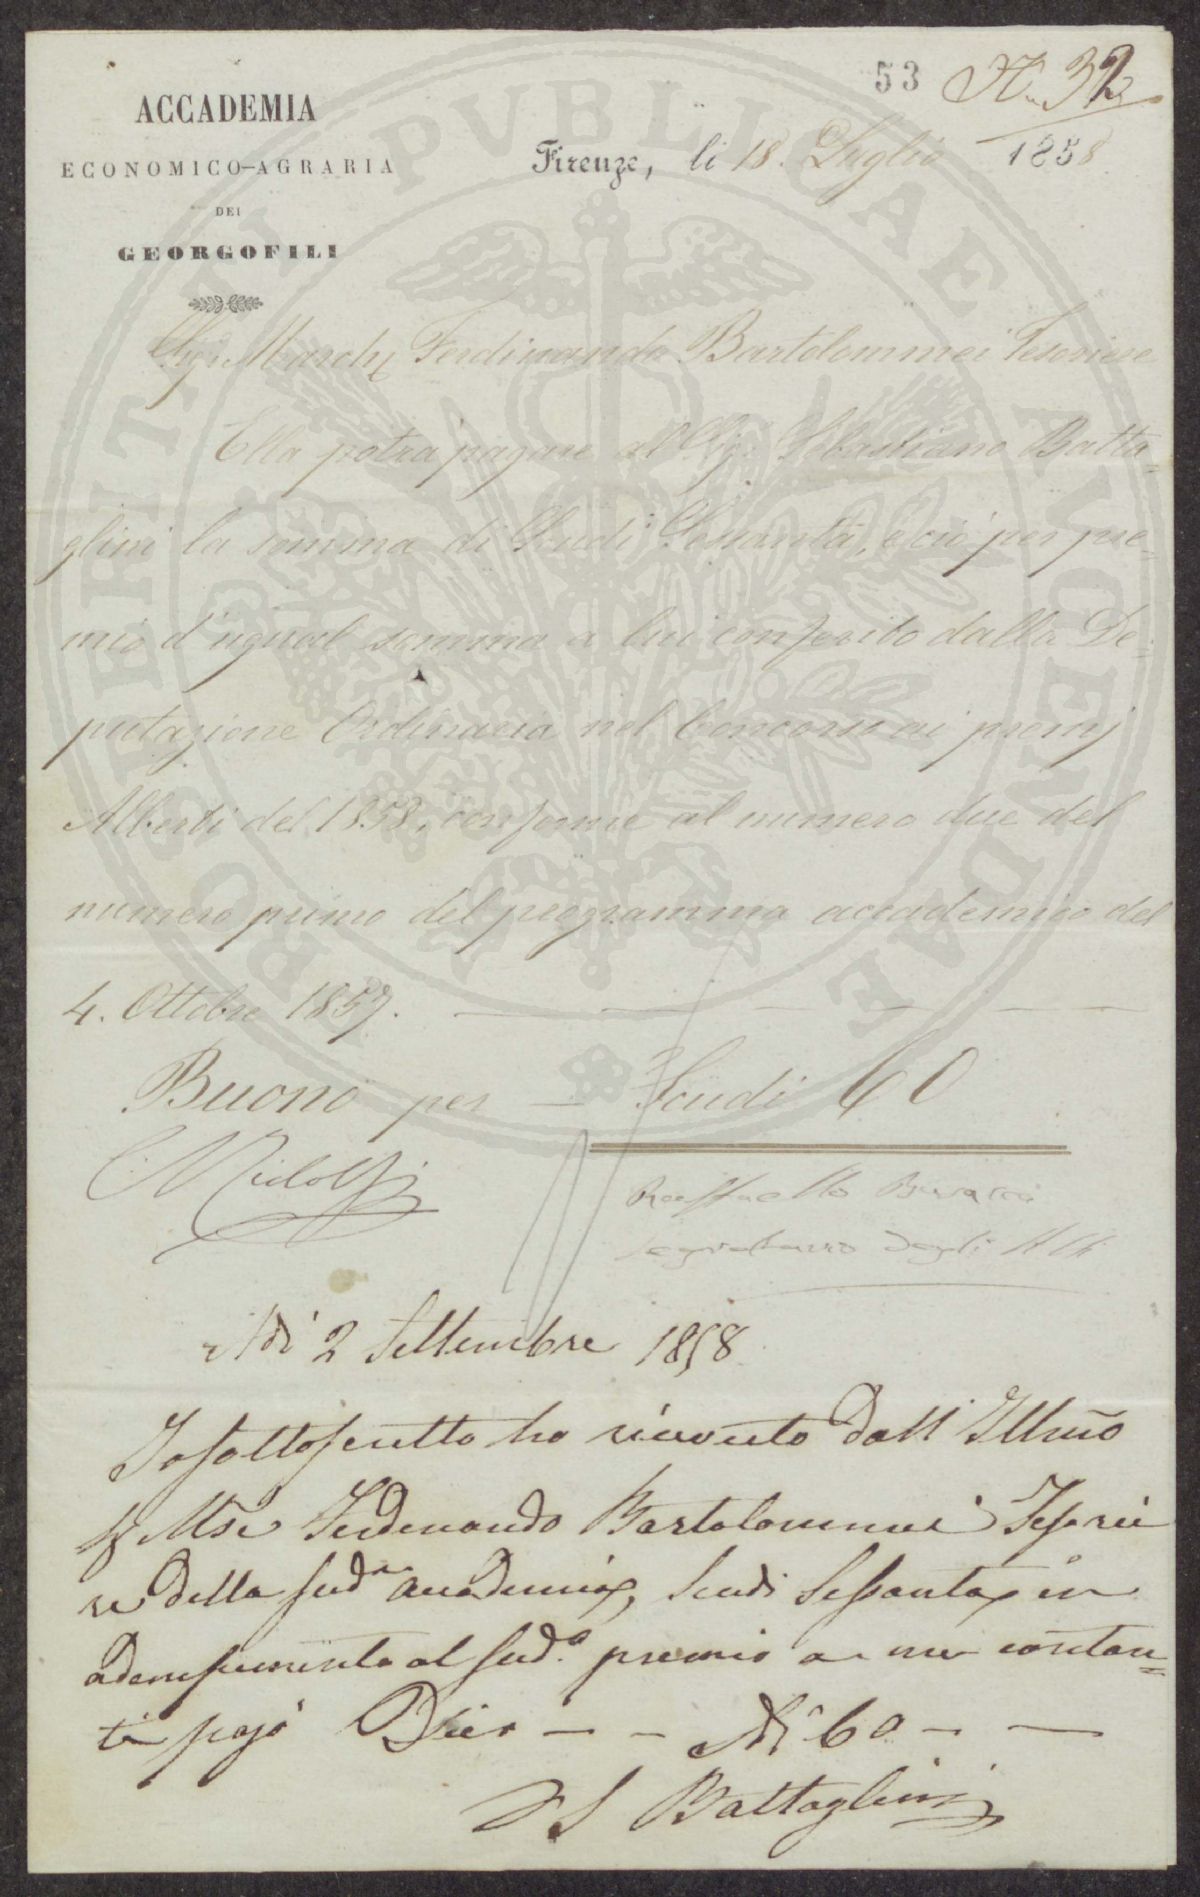 53 N. 32
ACCADEMIA
ECONOMICO-AGRARIA
DEI
GEORGOFILI
Firenze, li 18. Luglio 1858
Sig. March. Ferdinando Bartolommei Tesoriere
Ella potrà pagare al Sig. Sebastiano Batta=
glini la somma di Scudi Sessanta, e ciò per pre=
mio d'ugual somma a lui conferito dalla De=
putazione Ordinaria nel Concorso ai premj
Alberti del 1858, conforme al numero due del
numero primo del programma accademico del
4. Ottobre 1857.
Buono per — Scudi 60
C. Ridolfi
Raffaello
Segretario degli Atti
Adì 2 Settembre 1858
Io sottoscritto ho ricevuto dall' Illmo
Ferdinando Bartolommei Tesorie
re della sud.a accademia, Scudi Sessanta in
adempimento al sud.o premio a me contan=
ti pagò Dico — — 60 — —
S Battaglini
PROSPERITATI PVBLICAE AVGENDAE